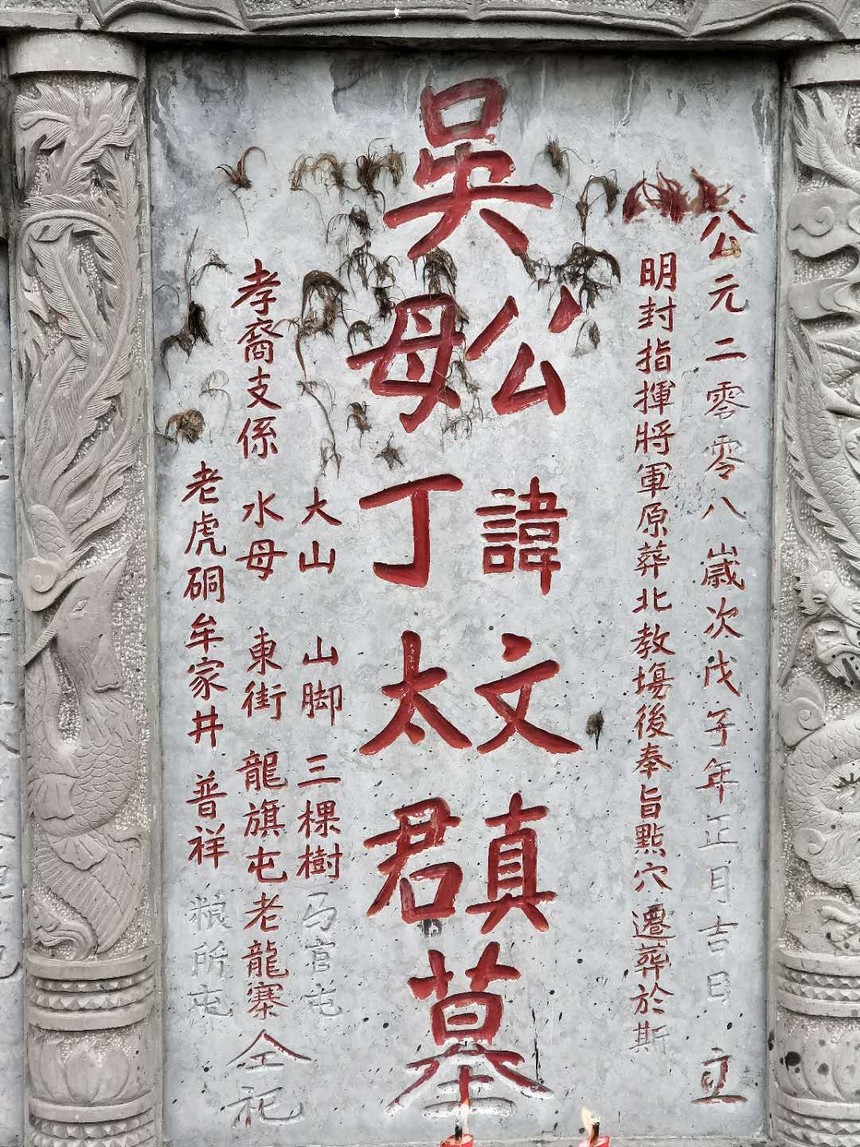 公元二零零八嵗次戊子年正月吉日 立
明封指揮將軍原葬北教塲後奉旨點穴遷葬於斯
吳公諱文真墓
母丁太君
大山 山脚 三棵樹 官屯
孝裔支係 水母 東街 龍旗屯 老龍寨 仝祀
老虎硐 牟家井 普祥 粮所屯